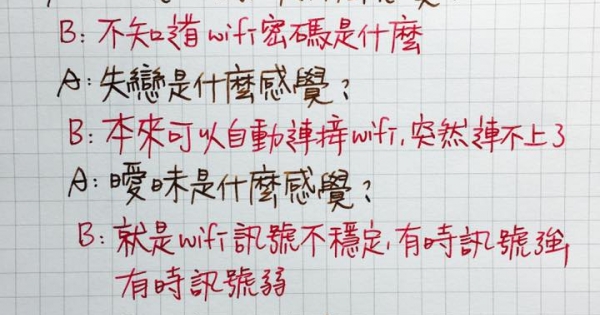 B: 不知道wifi密碼是什麼
A: 失戀是什麼感覺?
B: 本來可以自動連接wifi,突然連不上了
A: 曖昧是什麼感覺?
B: 就是wifi訊號不穩定,有時訊號強,
有時訊號弱